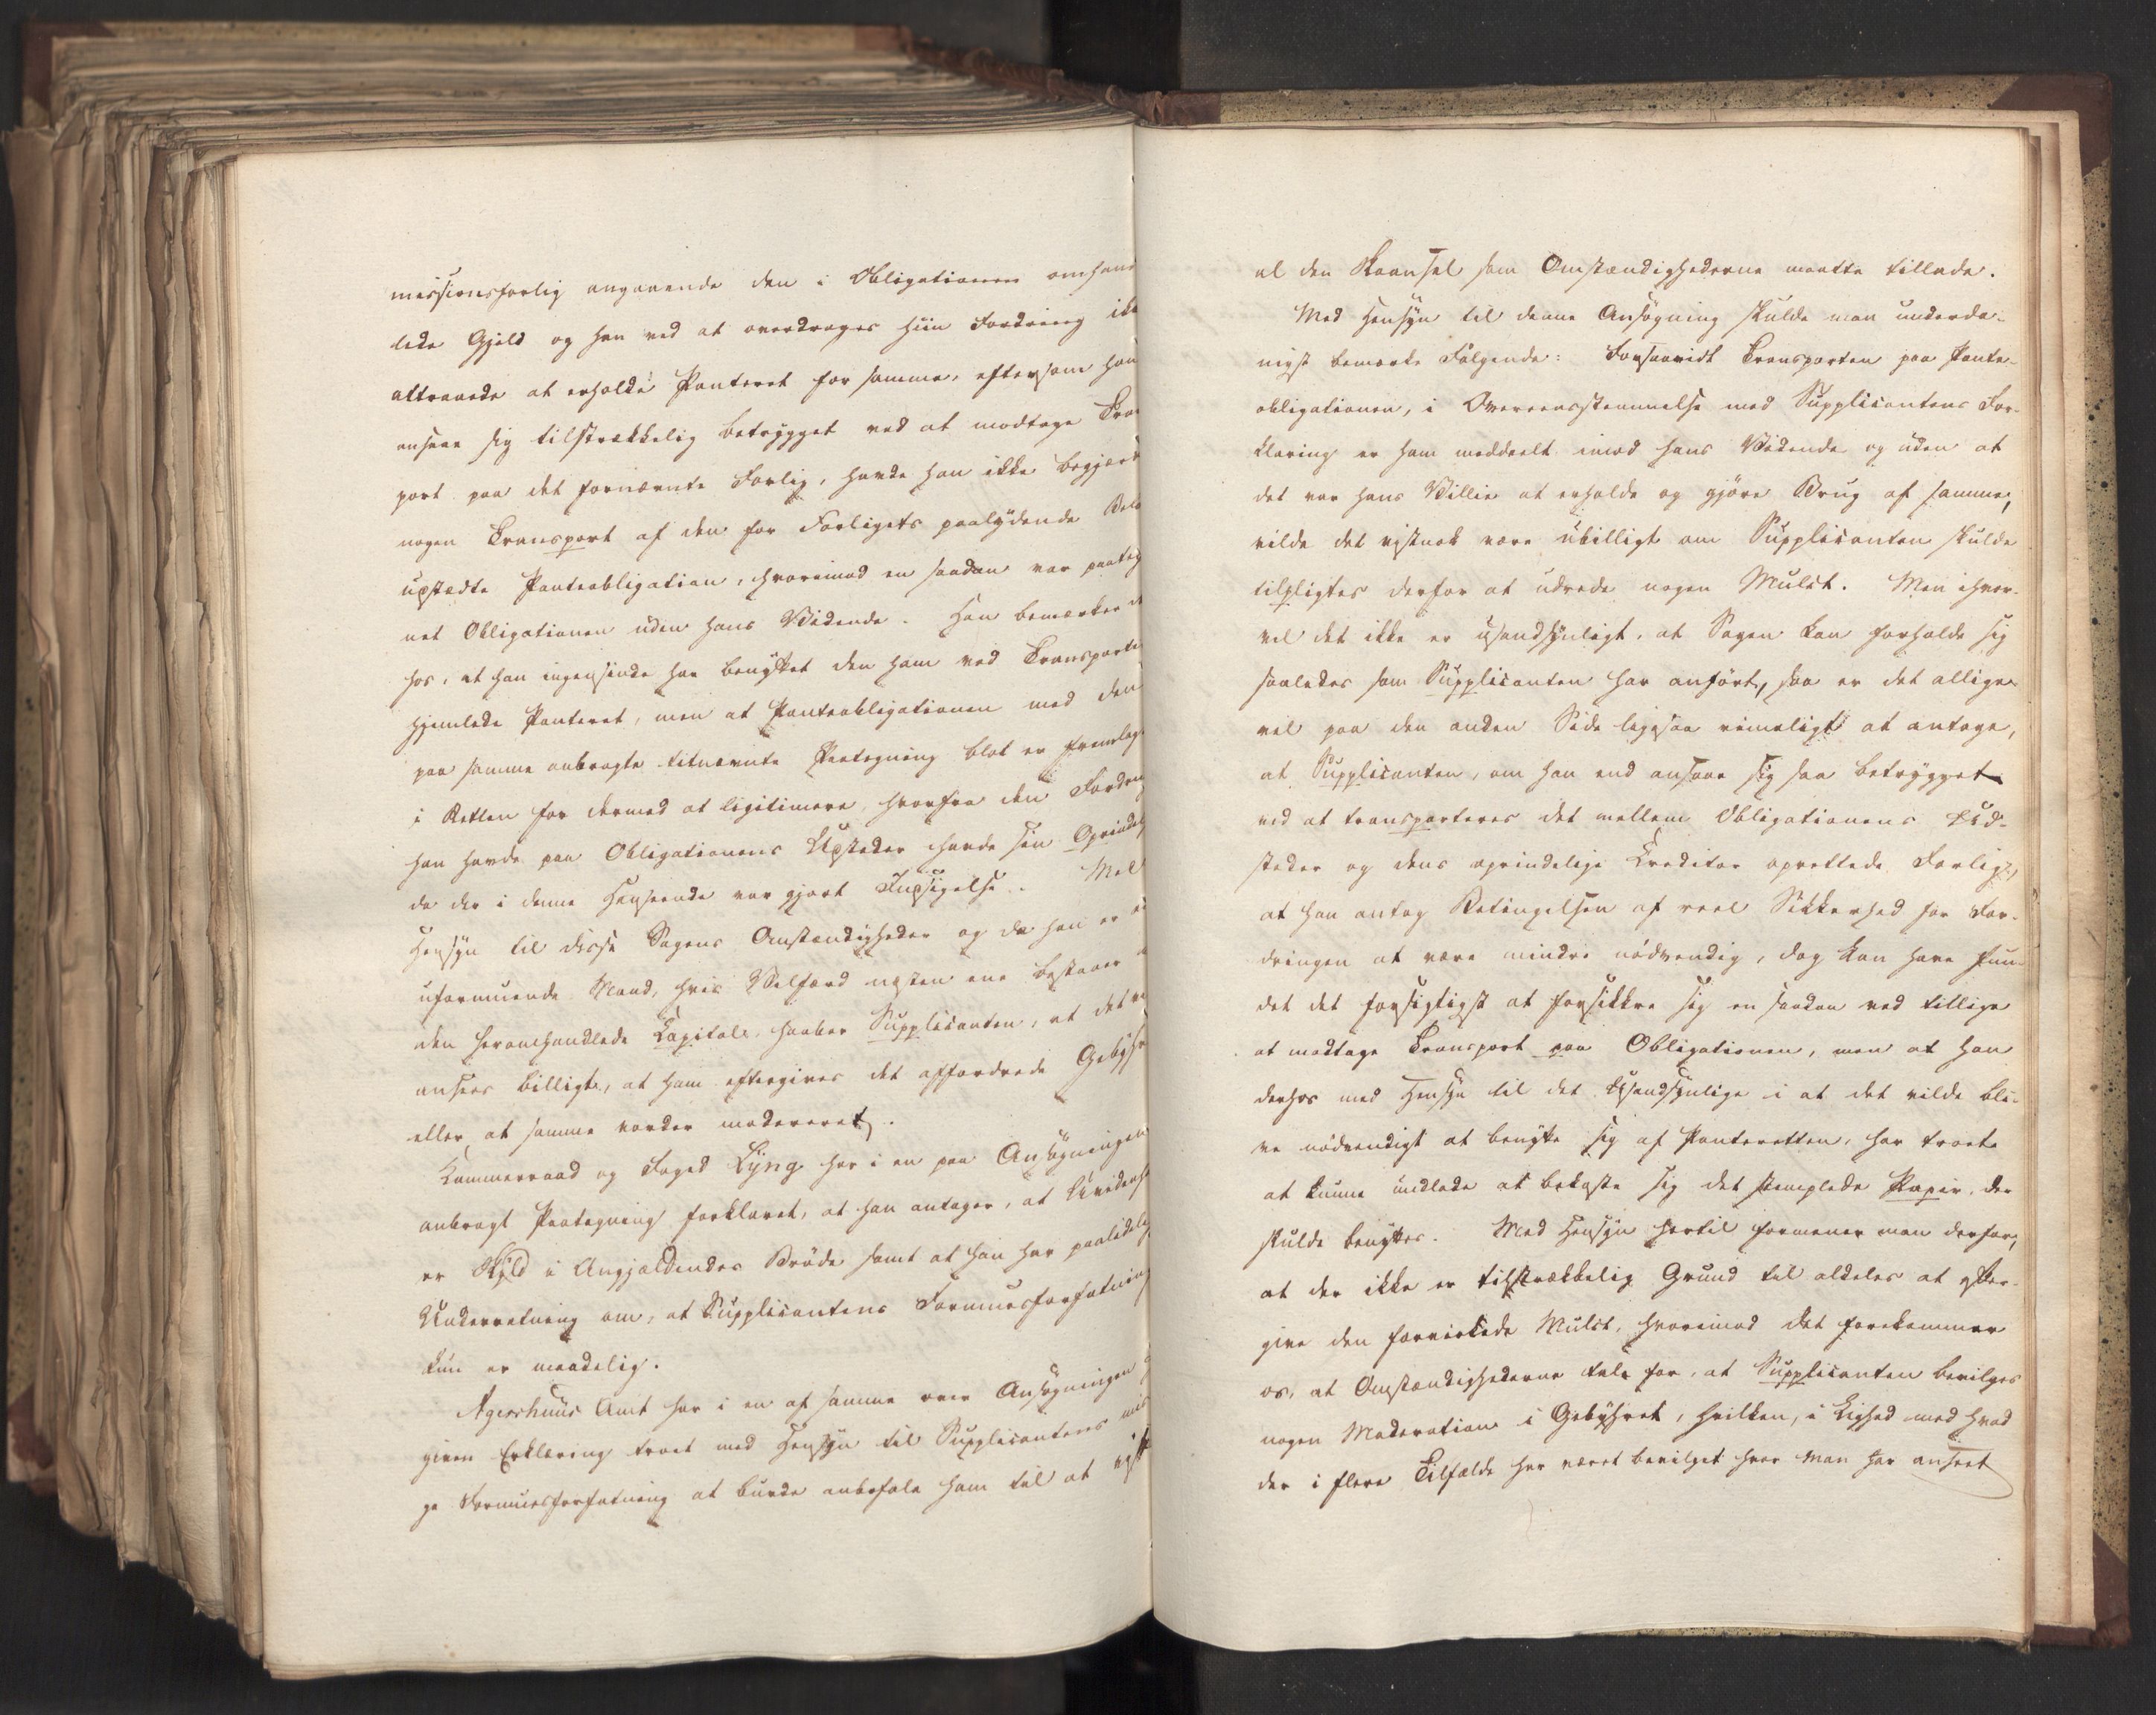 missionsforlig angaaende den i Obligationen omhand
lede Gjeld og han ved at overdrages hiin Fordring ikke
attraaede at erholde Panteret for samme, eftersom han
ansaae sig tilstrækkelig betrygget ved at modtage Trans
port paa det fornævnte Forlig, havde han ikke begjært
nogen Transport af den for Forligets paalydende Beløb
udstædte Panteobligation, hvorimod en saadan var paateg
net Obligationen uden hans Vidende. Han bemærker der
hos, at han ingensinde har benyttet den ham ved Transporten
hjemlede Panteret, men at Panteobligationen med den
paa samme anbragte bemeldte Paategning blot er fremlagt
i Retten for dermed at legitimere, hvorfra den Fordring
han havde paa Obligationens Udsteder havde sin Oprindelse
da der i denne Henseende var gjort Indsigelse. Med
Hensyn til disse Sagens Omstændigheder og da han er en
uformuende Mand, hvis Velfærd næsten ene bestaaer i
den heromhandlede Kapital, haaber Supplicanten, at det vil
ansees billigt, at ham eftergives det affordrede Gebyhr
eller at samme vorder modereret.
Kammerraad og Foged Lyng har i en paa Ansøgningen
anbragt Paategning forklaret, at han antager, at Uvidenhed
er Skyld i Angjældendes Brøde samt at han har paalidelig
Underretning om, at Supplicantens Formuesforfatning
kun er maadelig.
Agershuus Amt har i en af samme over Ansøgningen
given Erklæring troet med Hensyn til Supplicantens mis
ge Formuesforfatning at burde anbefale ham til at
al den Skaansel som Omstændighederne maatte tillade.
Med Hensyn til denne Ansøgning skulde man underda-
nigst bemærke Følgende: Forsaavidt Transporten paa Pante-
obligationen, i Overeensstemmelse med Supplicantens For-
klaring er ham meddeelt imod hans Vidende og uden at
det var hans Villie at erholde og gjøre Brug af samme,
vilde det vistnok være ubilligt om Supplicanten skulde
tilpligtes derfor at udrede nogen Mulct. Men ihvor-
vel det ikke er usandsynligt, at Sagen kan forholde sig
saaledes som Supplicanten har anført, saa er det allige-
vel paa den anden Side ligesaa rimeligt at antage,
at Supplicanten, om han end ansaae sig saa betrygget
ved at transporteres det mellem Obligationens Ud-
steder og dens oprindelige Creditor oprettede Forlig,
at han antog Betingelsen af reel Sikkerhed for For-
dringen at være mindre nødvendig, dog kan have fun-
det det forsigtigst at forsikkre sig en saadan ved tillige
at modtage Transport paa Obligationen, men at han
derhos med Hensyn til det Usandsynlige i at det vilde bli-
ve nødvendigt at benytte sig af Panteretten, har troet
at kunne undlade at bekoste sig det stemplede Papir, der
skulde benyttes. Med Hensyn hertil formener man derfor,
at der ikke er tilstrækkelig Grund til aldeles at efter-
give den forvirkede Mulct, hvorimod det forekommer
os, at Omstændighederne tale for, at Supplicanten bevilges
nogen Moderation i Gebyhret, hvilken, i Lighed med hvad
der i flere Tilfælde har været bevilget hvor man har anseet